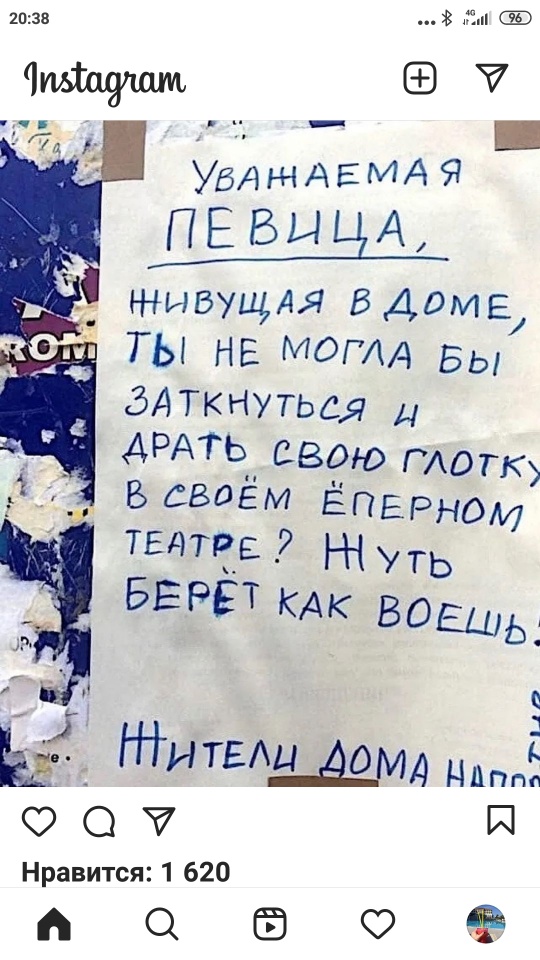 20:38
4G
96
Instagram
УВАЖАЕМАЯ
ПЕВИЦА,
ЖИВУЩАЯ В ДОМЕ,
ROM
ТЫ НЕ МОГЛА БЫ
ЗАТКНУТЬСЯ И
ДРАТЬ СВОЮ ГЛОТКУ
В СВОЁМ ЁПЕРНОМ
ТЕАТРЕ? ЖУТЬ
БЕРЁТ КАК ВОЕШЬ!
ЖИТЕЛИ ДОМА
Нравится: 1 620